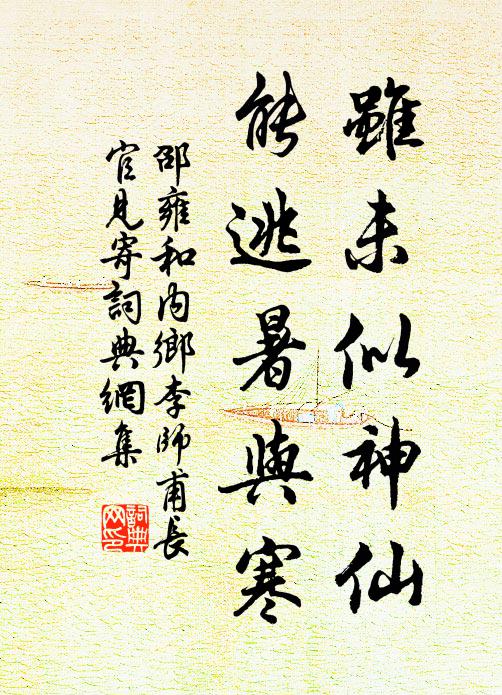 雖未似神仙
能逃暑與寒
邵雍和內鄉李師甫長
官見寄詞典網集
詞典
网印